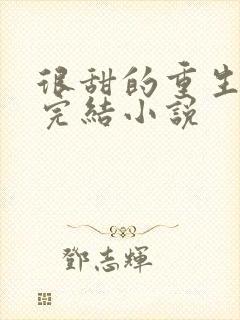 很甜的重生
完結小說
鄧志輝